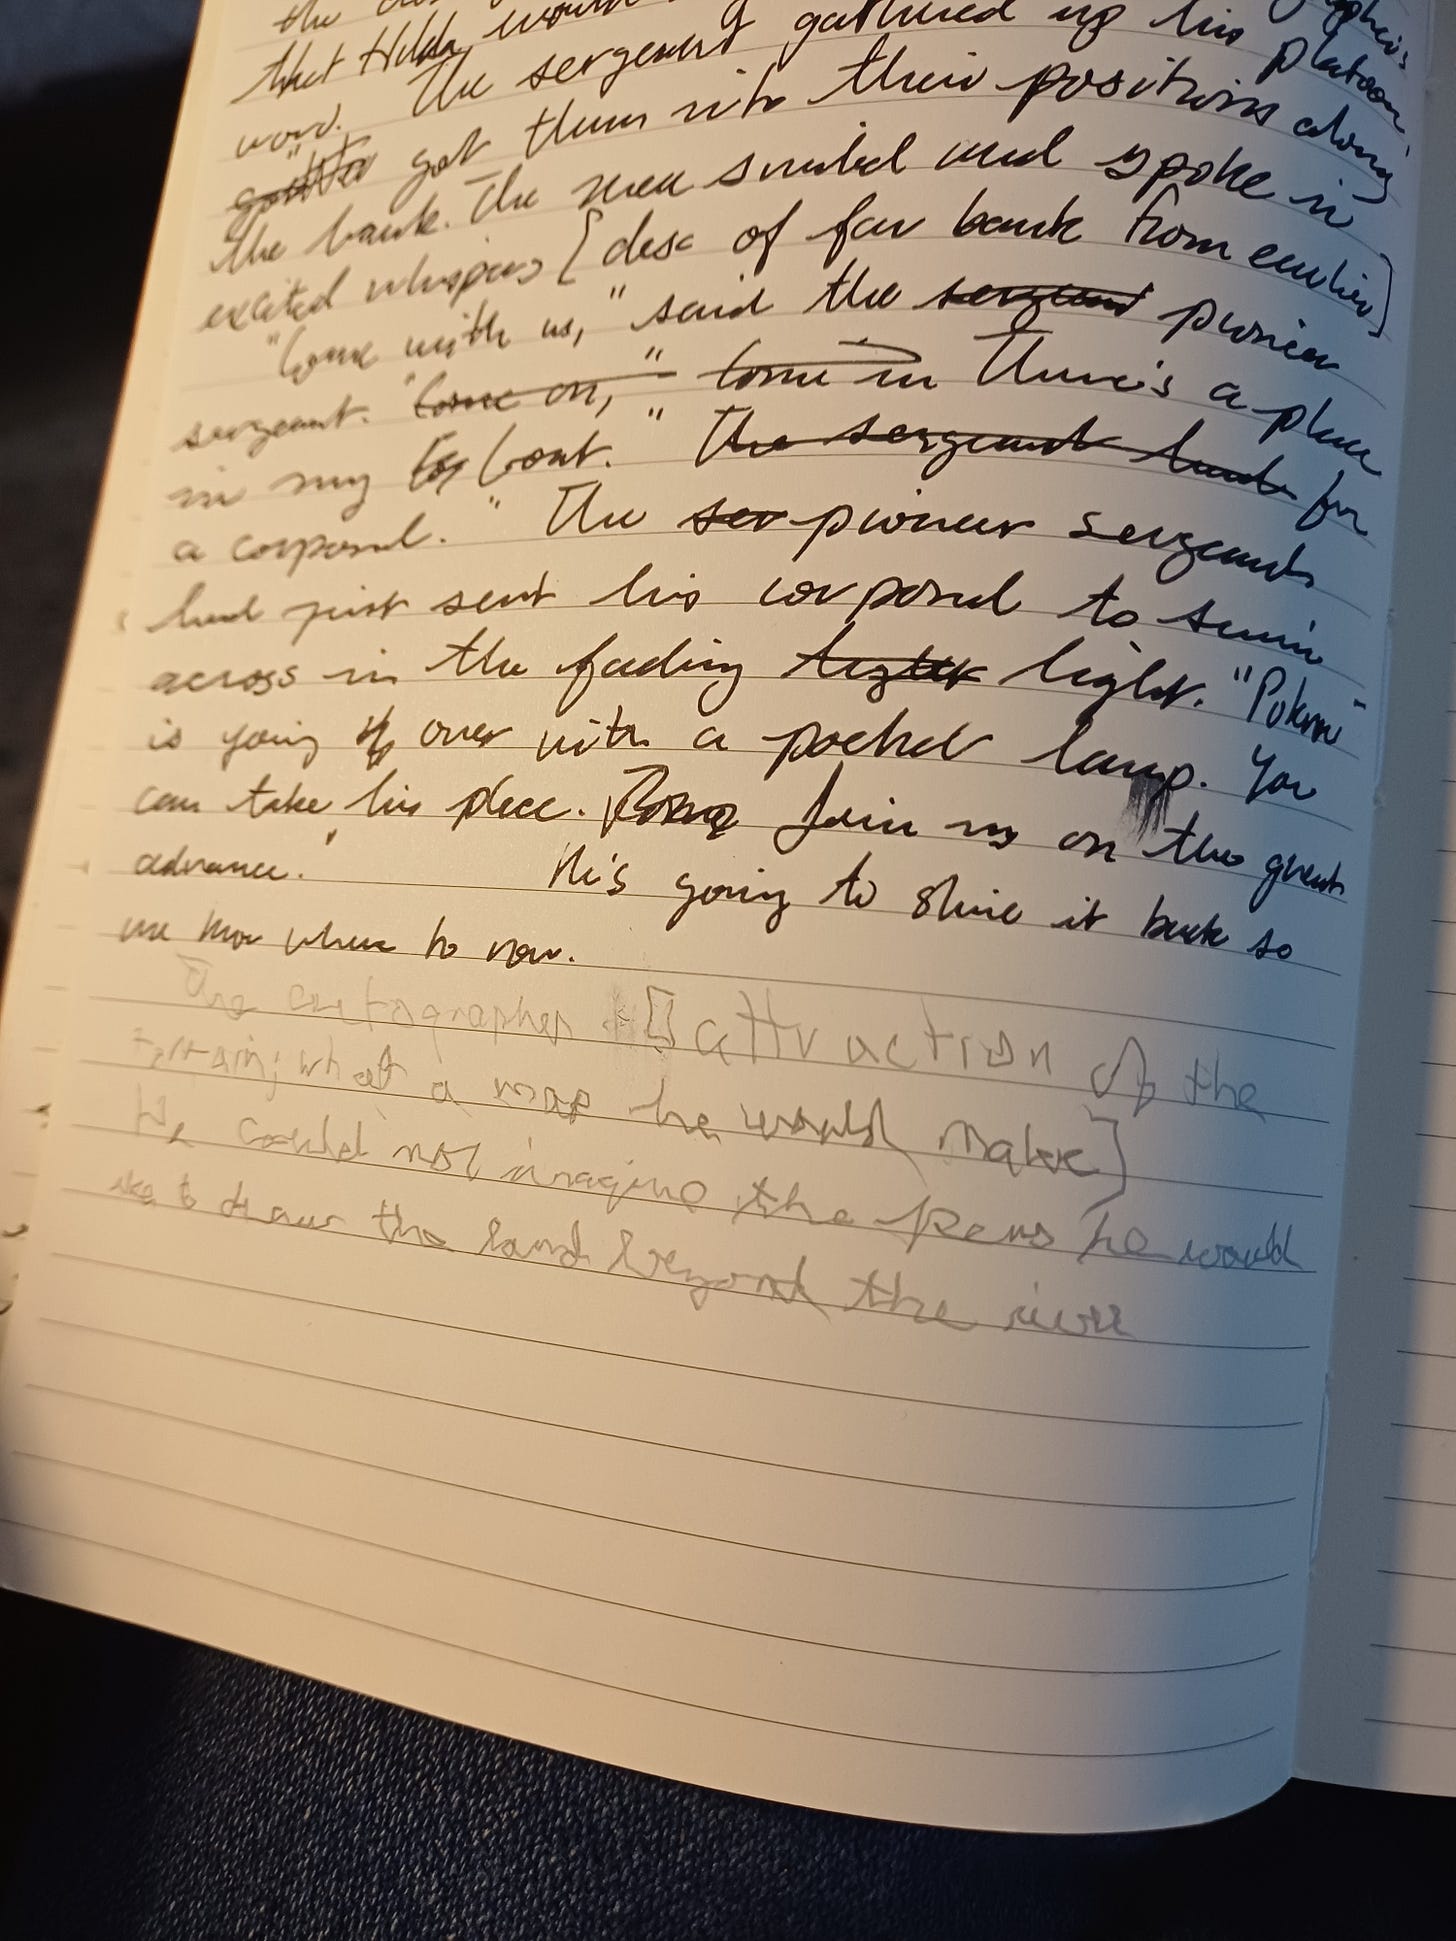 that Hilda would
word. The sergeant gathered up his platoon,
got them into their positions along
the bank. The men smiled and spoke in
excited whispers [desc of far bank from earlier]
"Come with us," said the sergeant pioneer
sergeant. "Come on," "Come in There's a place
in my boat." "The sergeant had for
a corporal." The ser pioneer sergeant
had just sent his corporal to swim
across in the fading light. "Pokorni
is going over with a pocket lamp. You
can take his place. Join us on the great
advance." He's going to shine it back so
we know where to row.
The cartographer [attraction of the
terrain; what a map he would make]
He could not imagine the pens he would
use to draw the land beyond the river